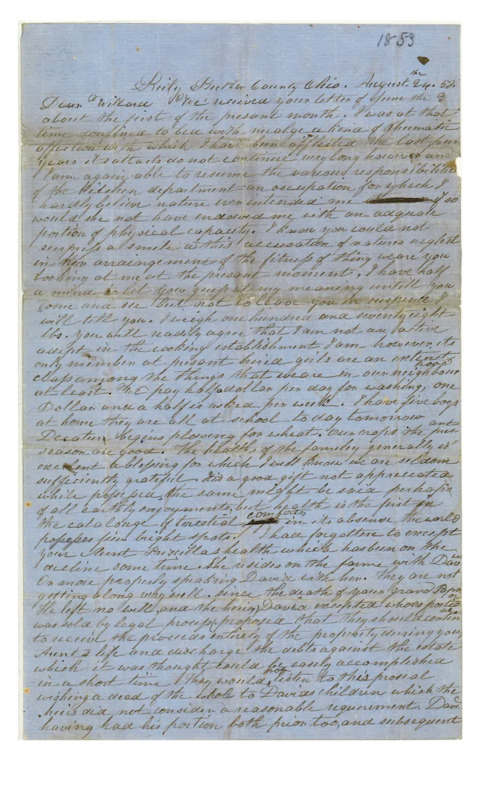 1853
Reily Butler County Ohio. August the 24. 53.
Dear Willard We received your letter of June the 3
about the first of the present month. I was at that
time confined to bed with neuralgea a kind of rheumatic
affection with which I have been afflicted the last
years its attacts do not continue very long however and
I am again able to resume the various responsibilities
of the Kitchen department an occupation for which I
hardly belive nature ever intended me if so
would she not have endowed me with an adquate
portion of physical capacity. I know you could not
suppress a smile at this accusation of natures neglect
in her arraingement of the fitness of thing ware you
looking at me at the present moment. I have half
a mind to let you guess at my meaning untill you
come and see But not to leave you in suspense I
will tell you. I weigh one hundred and seventy eight
lbs. you will readily agree that I am not an active
adept in the cooking establishment I am however, its
only member at presant hired girls are an extinct
class among the things that ware in our neighbour hood
at least. We pay half a dollar per day for washing, one
Dollar and a half is asked per week. I have five boys
at home they are all at school to day tomorrow
Decatur begins plowing for wheat. Our crops the
season are good. The health of the famuley generally is
excelent a blessing for which I know we are seldom
sufficiently grateful. It is a good gift not appreciated
while possessed, the same might be said perhaps
of all earthly enjoyments, but health is the first in
the catalouge of terestial comforts in its absense the world
possesses few bright spots. I had forgotten to except
your Aunt Priscillas health which has been on the
decline some time. she resides on the farm with Dav
Or more properly speaking David with her. They are not
getting along very well. since the death of your Grand Papa
He left no will, and the heirs, David excepted whose portion
was sold by legal process, proposed that they should continue
to receive the proceeds intirely of the property during your
Aunts life and discharge the debts against the estate
which it was thought could be easily accomplished
in a short time They would not listen to this prosal
wishing a dead of the whole to Davids children which the
heirs did not consider a reasonable requirement. Davi
having had his portion both prior too, and subsequent